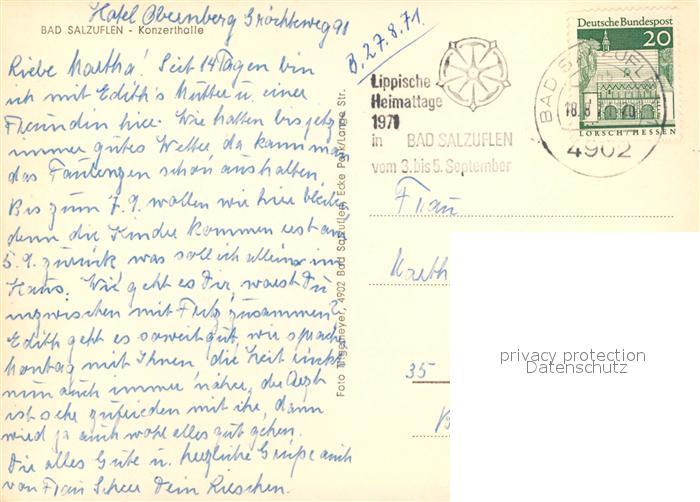 Hotel Obernberg Gröchteweg 91
BAD SALZUFLEN - Konzerthalle
B. 27.8.71
Liebe Martha! Seit 14 Tagen bin
ich mit Edith's Mutter u. einer
Freundin hier. Wir hatten bis jetzt
immer gutes Wetter da kann man
das Faulenzen schon aushalten
Bis zum 7.9. wollen wir hier bleiben,
denn die Kinder kommen erst am
5.9. zurück was soll ich alleine im
Haus. Wie geht es Dir, warst Du
inzwischen mit Fritz zusammen?
Edith geht es soweit gut, wir sprachen
Montag mit Ihnen, die Zeit rückt
nun auch immer näher, der Arzt
ist sehr zufrieden mit ihr, dann
wird ja auch wohl alles gut gehen.
Dir alles Gute u. herzliche Grüße auch
von Frau Scheer Dein Rieschen.
Foto Tilgemeyer, 4902 Bad Salzuflen, Ecke Park/Lange Str.
Lippische
Heimattage
1971
in BAD SALZUFLEN
vom 3. bis 5. September
Deutsche Bundespost
20
LORSCH/HESSEN
BAD SALZUFLEN
4902
Frau
Martha
35
privacy protection
Datenschutz